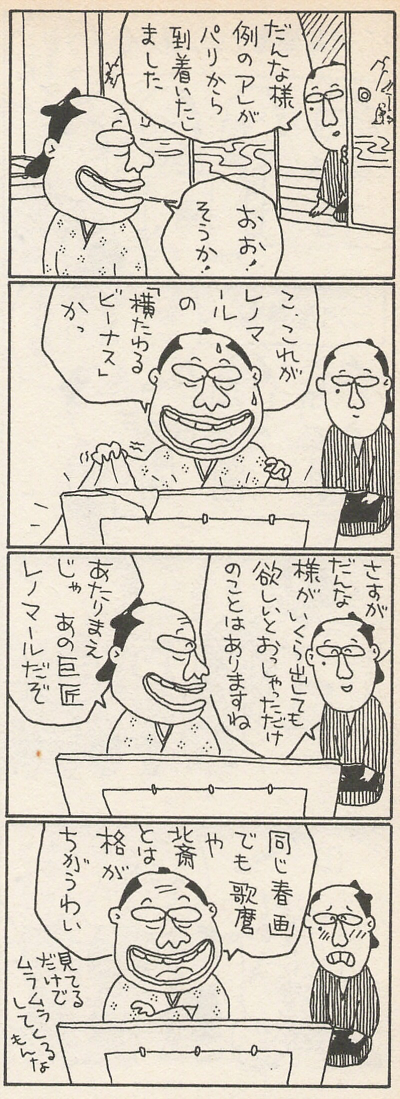 だんな様
例のアレが
パリから
到着いたし
ました
おお!
そうか!
こ、これが
レノマ
ール
の
「横たわる
ビーナス」
かっ
さすが
だんな
様がいくら出しても
欲しいとおっしゃっただけ
のことはありますね
あたりまえ
じゃ あの巨匠
レノマールだぞ
同じ春画」
でも歌麿
や
北斎
とは
格が
ちがうわい
見てる
だけで
ムラムラくるな
して
もんな